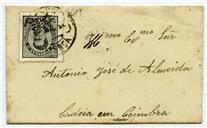 Illmo Exmo Snr
Antonio José de Almeida
Cadeia em Coimbra